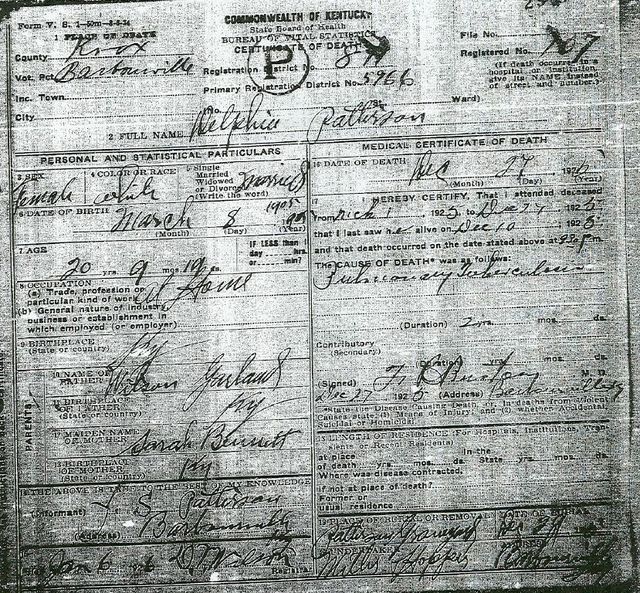 Form V. S. 1
COMMONWEALTH OF KENTUCKY
State Board of Health
BUREAU OF VITAL STATISTICS
CERTIFICATE OF DEATH
1 PLACE OF DEATH
County Knox
Vot. Pct. Barbourville
Inc. Town
City
No.
P
Registration District No.
Primary Registration District No. 5966
File No.
Registered No. 107
(If death occurred in a hospital or institution, give its NAME instead of street and number.)
St.
Ward)
2 FULL NAME Delphia Patterson
PERSONAL AND STATISTICAL PARTICULARS
3 SEX
Female
4 COLOR OR RACE
white
5 Single
Married
Widowed
or Divorced
(Write the word)
Married
6 DATE OF BIRTH March 8 1905
(Month) (Day) (Year)
7 AGE
20 yrs. 9 mos. 19 ds.
IF LESS than 1
day hrs.
or min?
8 OCCUPATION
(a) Trade, profession or
particular kind of work at Home
(b) General nature of industry,
business or establishment in
which employed (or employer)
9 BIRTHPLACE
(State or country) Ky
PARENTS
10 NAME OF
FATHER Wilson Garland
11 BIRTHPLACE
OF FATHER
(State or country) Ky
12 MAIDEN NAME
OF MOTHER Sarah Bennett
13 BIRTHPLACE
OF MOTHER
(State or country) Ky
14 THE ABOVE IS TRUE TO THE BEST OF MY KNOWLEDGE
(Informant) S Patterson
(Address) Barbourville
15
Jan 6 D. Wilson
Registrar
MEDICAL CERTIFICATE OF DEATH
16 DATE OF DEATH
Dec 27 192
(Month) (Day) (Year)
17 I HEREBY CERTIFY, That I attended deceased
from 1925 to Dec 27 1925
that I last saw he alive on Dec 10 1925
and that death occurred on the date stated above at
The CAUSE OF DEATH* was as follows:
Pulmonary Tuberculosis
(Duration) 2 yrs. mos. ds.
Contributory
(Secondary)
(Duration) yrs. mos. ds.
(Signed) M. D.
Dec 27 1925 (Address) Barbourville Ky
*State the Disease Causing Death, or, in deaths from Violent
Causes, state (1) Means of Injury; and (2) whether Accidental,
Suicidal or Homicidal.
18 LENGTH OF RESIDENCE (For Hospitals, Institutions, Transients
or Recent Residents)
At place In the
of death yrs. mos. ds. State yrs. mos. ds.
Where was disease contracted,
if not at place of death?
Former or
usual residence
19 PLACE OF BURIAL OR REMOVAL DATE OF BURIAL
Patterson Graveyard Dec 29
20 UNDERTAKER ADDRESS
Hopper